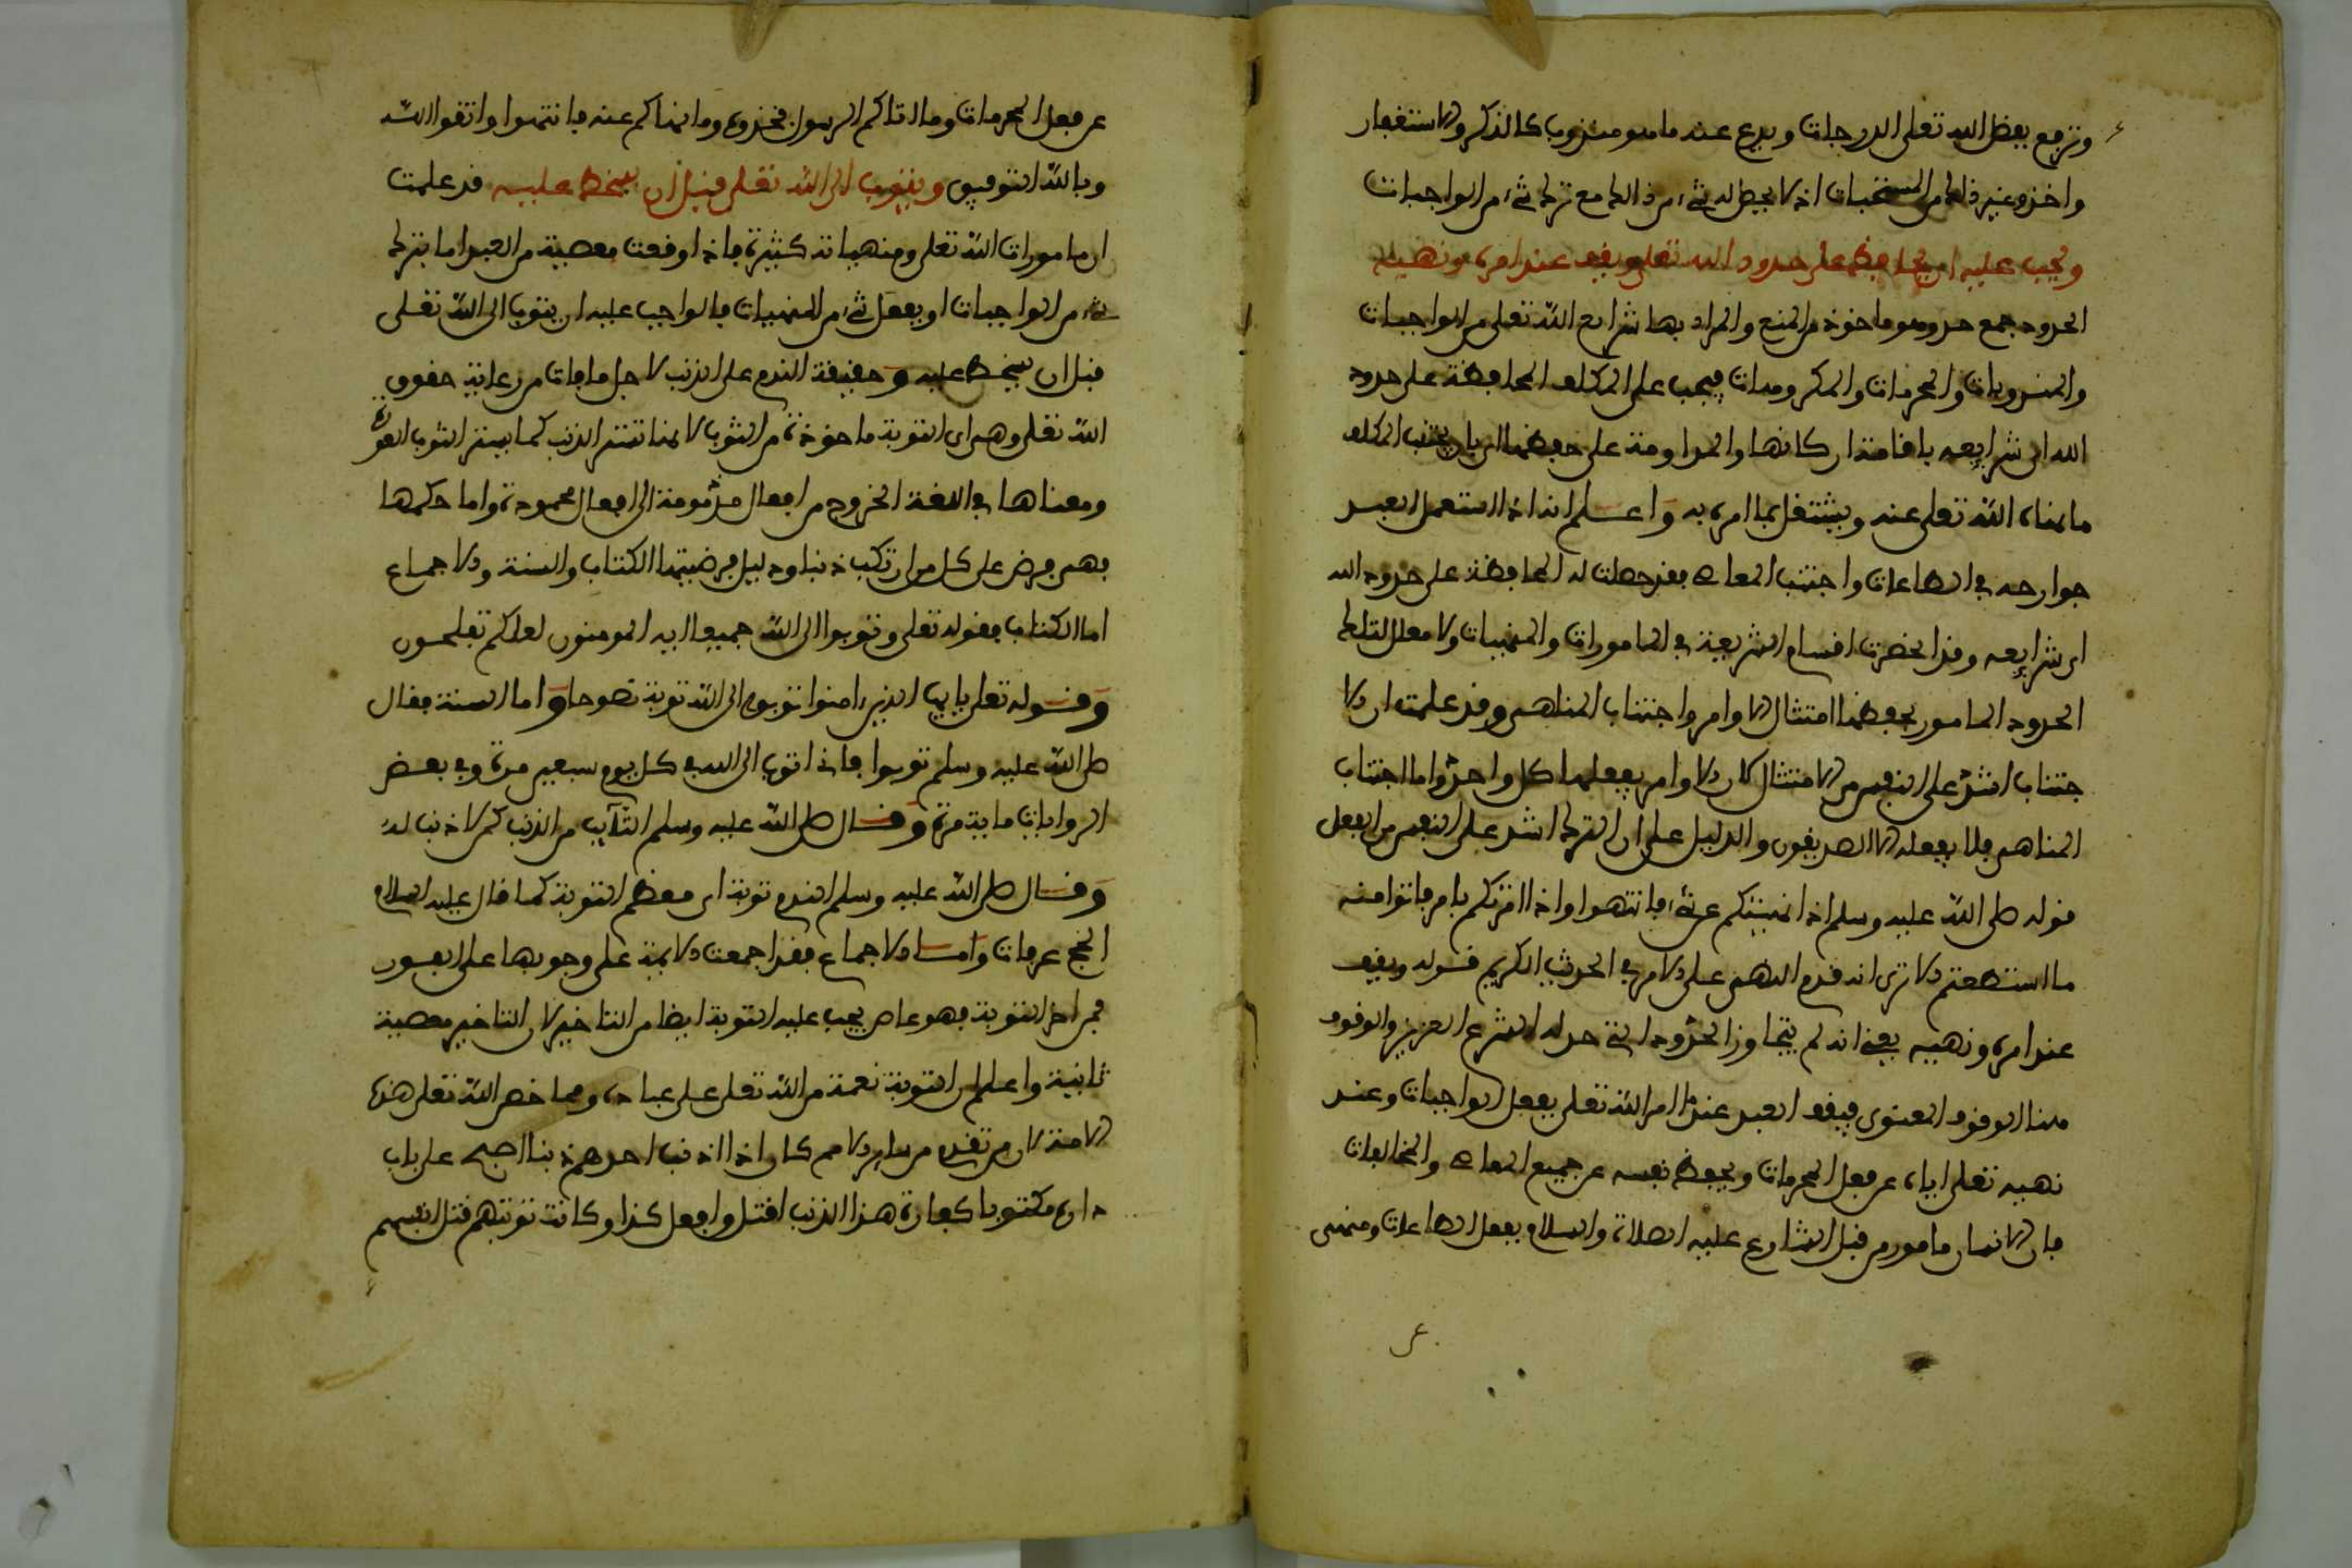 وترفع بفضل الله تعلى الدرجات ويدع عنه ما هو مندوب كالذكر والاستغفار
واخذ وغير ذلك من المستحبات اذ لا يحصل له شيء من ذلك مع ترك شيء من الواجبات
ويجب عليه ان يحافظ على حدود الله تعلى ويقف عند امره ونهيه
الحدود جمع حد وهو ماخوذ من المنع والمراد بها شرايع الله تعلى من الواجبات
والمندوبات والمحرمات والمكروهات فيجب على المكلف المحافظة على حدود
الله اى شرايعه باقامة اركانها والمداومة على حفظها اى بان يجتنب المكلف
ما نهاه الله تعلى عنه ويشتغل بما امره به واعلم انه اذا استعمل العبد
جوارحه في الطاعات واجتنب المعاصي فقد حصلت له المحافظة على حدود الله
اى شرايعه وقد انحصرت اقسام الشريعة في المامورات والمنهيات ولا معنى لتلك
الحدود المامور بحفظها الا امتثال الاوامر واجتناب المناهي وقد علمت ان الا
جتناب اشد على النفس من الامتثال لان الاوامر يفعلها كل واحد واما اجتناب
المناهي فلا يفعله الا الصديقون والدليل على ان الترك اشد على النفس من الفعل
قوله صلى الله عليه وسلم اذا نهيتكم عن شيء فانتهوا واذا امرتكم بامر فاتوا منه
ما استطعتم الا ترى انه قدم النهي على الامر في الحديث الكريم قوله ويقف
عند امره ونهيه يعني انه لم يتجاوز الحدود التي حد له الشرع العزيز والوقوف
هنا الوقوف المعنوي فيقف العبد عند ما امر الله تعلى بفعل الواجبات وعند
نهيه تعلى اياه عن فعل المحرمات ويحفظ نفسه عن جميع المعاصي والمخالفات
فان الانسان مامور من قبل الشارع عليه الصلاة والسلام بفعل الطاعات ومنهى
عن
عن فعل المحرمات وما اتاكم الرسول فخذوه وما نهاكم عنه فانتهوا واتقوا الله
وبالله التوفيق ويتوب الى الله تعلى قبل ان يسخط عليه قد علمت
ان مامورات الله تعلى ومنهياته كثيرة فاذا وقعت معصية من العبد اما بترك
شيء من الواجبات او بفعل شيء من المنهيات فالواجب عليه ان يتوب الى الله تعلى
قبل ان يسخط عليه وحقيقة الندم على الذنب لاجل ما فات من رعاية حقوق
الله تعلى وهي اى التوبة ماخوذة من الثوب لانها تستر الذنب كما يستر الثوب العورة
ومعناها في اللغة الخروج من افعال مذمومة الى افعال محمودة واما حكمها
فهي فرض على كل من ارتكب ذنبا ودليل فرضيتها الكتاب والسنة والاجماع
اما الكتاب فقوله تعلى وتوبوا الى الله جميعا ايه المومنون لعلكم تفلحون
وقوله تعلى يايها الذين امنوا توبوا الى الله توبة نصوحا واما السنة فقال
صلى الله عليه وسلم توبوا فاني اتوب الى الله في كل يوم سبعين مرة وفي بعض
الروايات ماية مرة وقال صلى الله عليه وسلم التآيب من الذنب كمن لا ذنب له
وقال صلى الله عليه وسلم الندم توبة اى معظم التوبة كما قال عليه السلام
الحج عرفات واما الاجماع فقد اجمعت الايمة على وجوبها على الفور
فمن اخر التوبة فهو عاص يجب عليه التوبة ايضا من التاخير لان التاخير معصية
ثانية واعلم ان التوبة نعمة من الله تعلى على عباده ومما خص الله تعلى هذه
الامة لان من تقدم من ساير الامم كان اذا اذنب احدهم ذنبا اصبح على باب
داره مكتوبا كفارة هذا الذنب اقتل وافعل كذا وكانت توبتهم قتل انفسهم